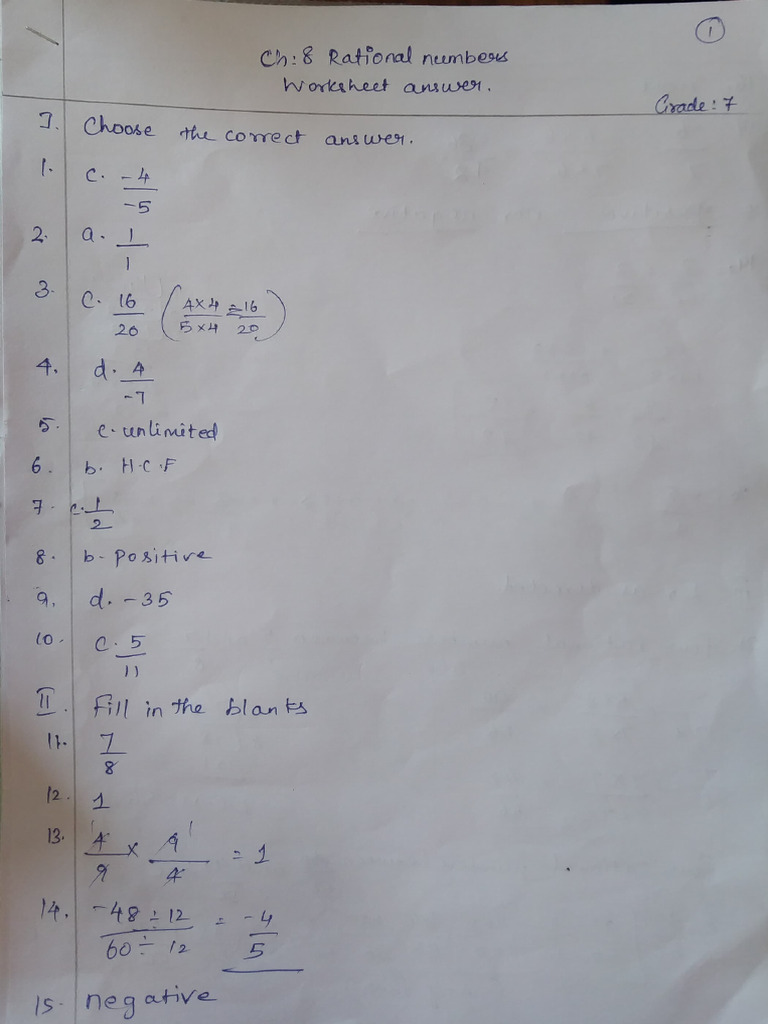 1
Ch: 8 Rational numbers
Worksheet answer.
Grade: 7
I. Choose the correct answer.
1. c. -4/-5
2. a. 1/1
3. c. 16/20 (4×4/5×4 = 16/20)
4. d. 4/-7
5. c. unlimited
6. b. H.C.F
7. c. 1/2
8. b. Positive
9. d. -35
10. c. 5/11
II. Fill in the blanks
11. 7/8
12. 1
13. 4/9 × 9/4 = 1
14. -48 ÷ 12/60 ÷ 12 = -4/5
15. negative